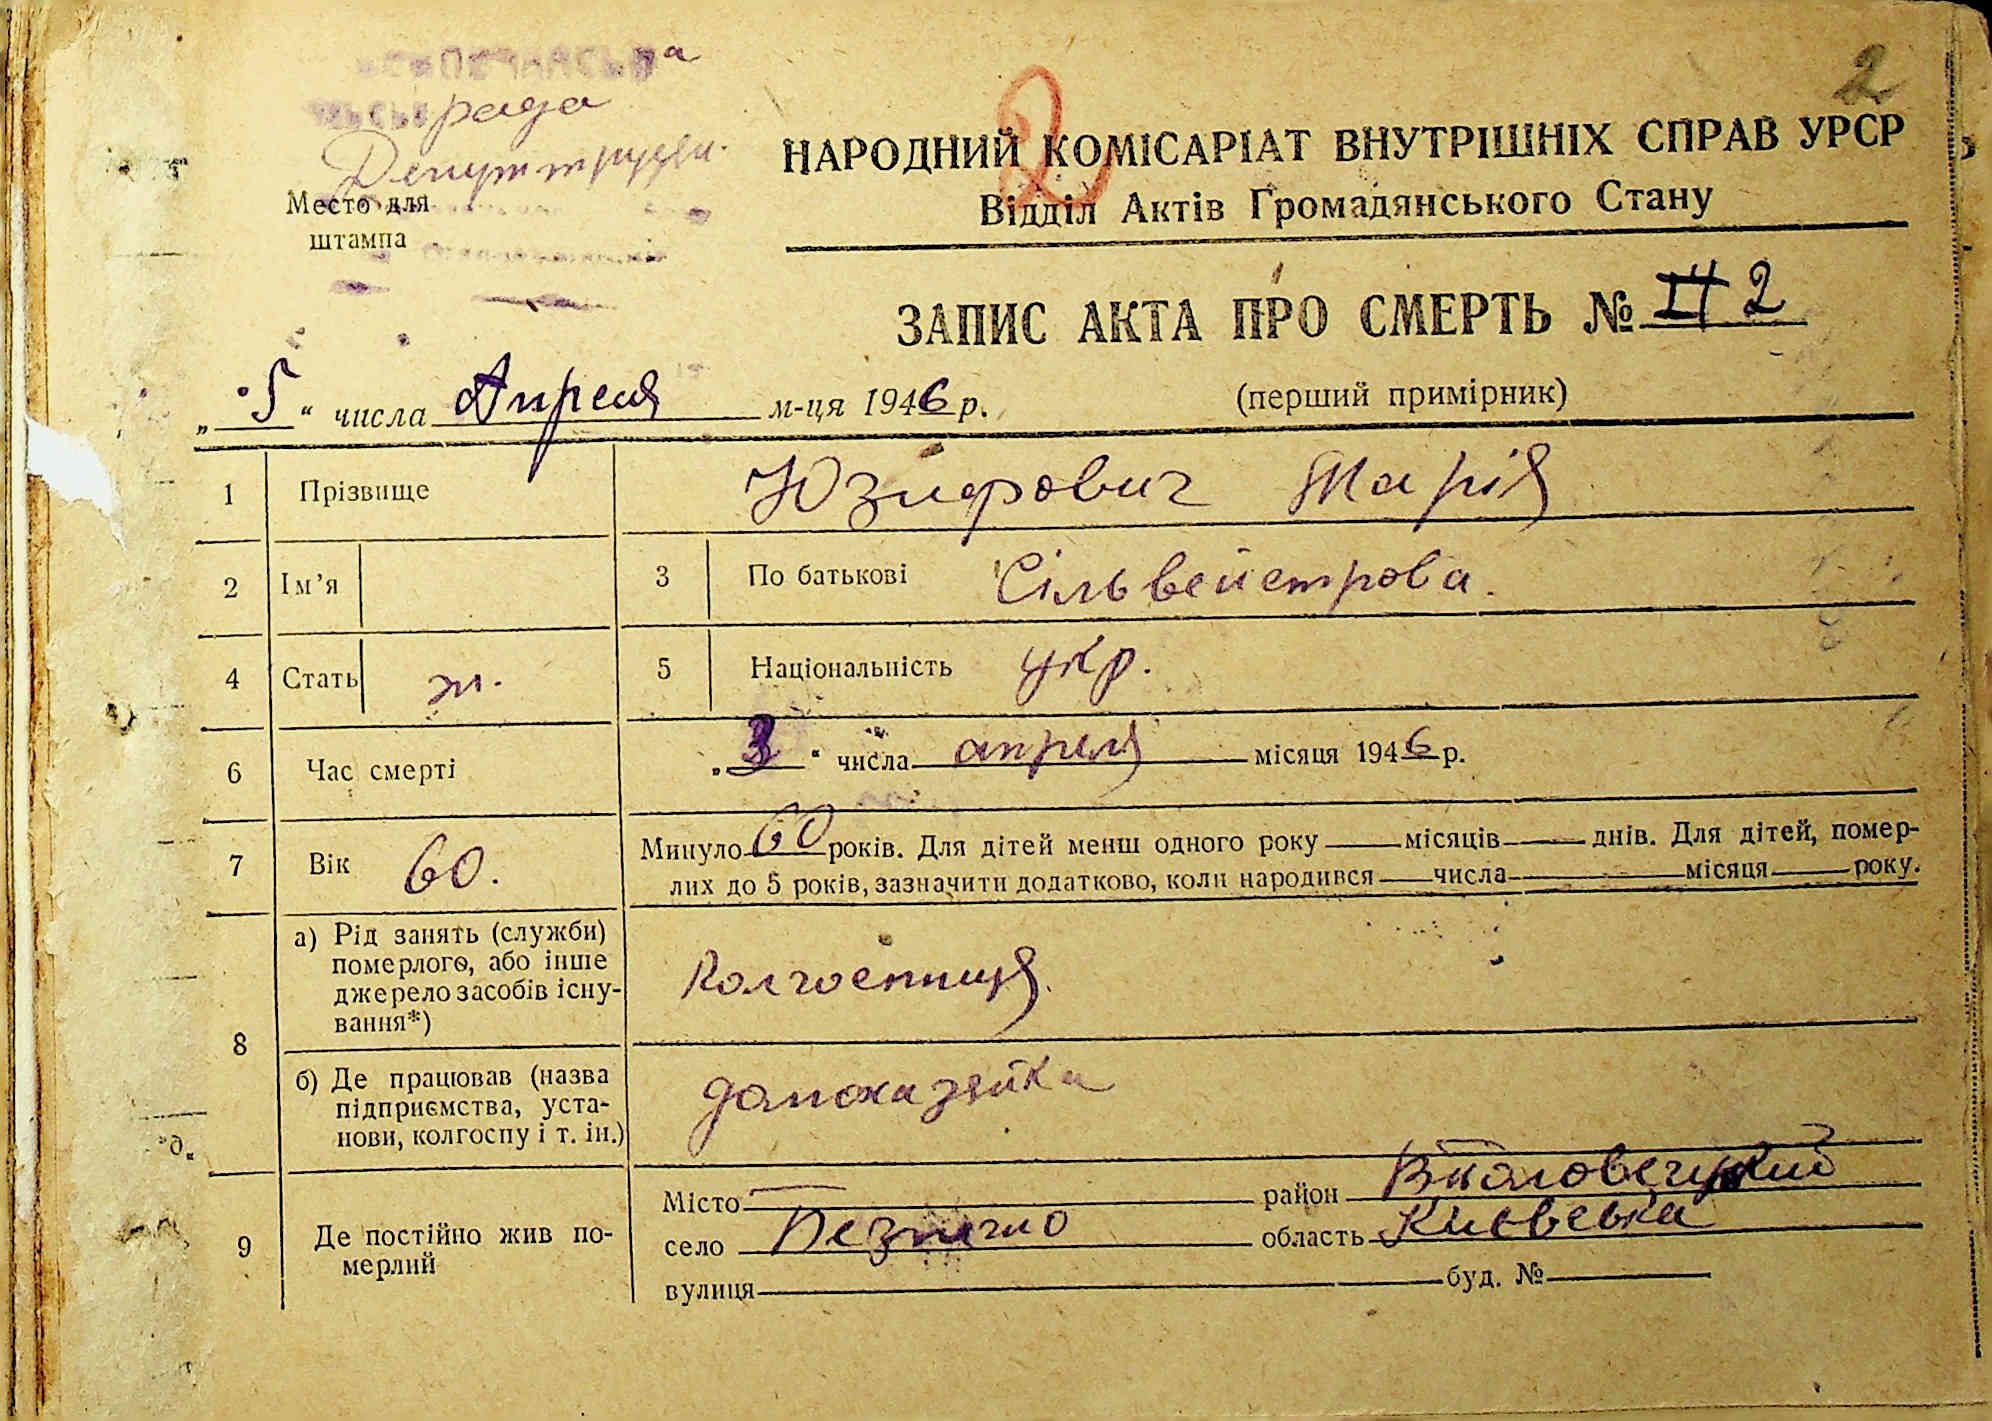 рада
Депут трудящ.
Место для
штампа
2
2
НАРОДНИЙ КОМІСАРІАТ ВНУТРІШНІХ СПРАВ УРСР
Відділ Актів Громадянського Стану
ЗАПИС АКТА ПРО СМЕРТЬ № 2
„5“ числа Апреля м-ця 1946 р. (перший примірник)
1 Прізвище Юзифович Марія
2 Ім’я 3 По батькові Сільвейстрова.
4 Стать ж. 5 Національність укр.
6 Час смерті „3“ числа апреля місяця 1946 р.
7 Вік 60. Минуло 60 років. Для дітей менш одного року місяців днів. Для дітей, помер-
лих до 5 років, зазначити додатково, коли народився числа місяця року.
8 а) Рід занять (служби)
померлого, або інше
джерело засобів існу-
вання*)
Колгоспниця.
б) Де працював (назва
підприємства, уста-
нови, колгоспу і т. ін.)
домохазяйка
9 Де постійно жив по-
мерлий
Місто — район
село область Киевська
вулиця буд. №